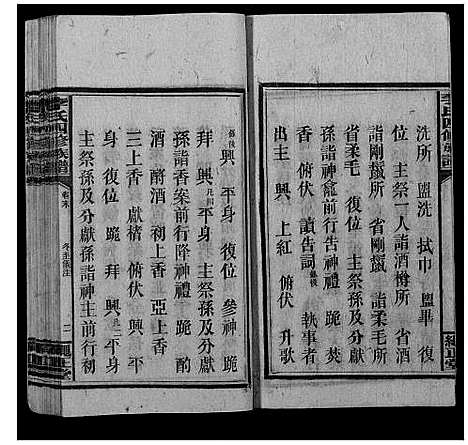 李氏四修族譜
洗所 盥洗 拭巾 盥畢 復
位 主祭一人詣酒樽所 省酒
詣剛鬣所 省剛鬣 詣柔毛所
省柔毛 復位 主祭孫詣
孫詣神龕前行告神禮 跪 焚
香 俯伏 讀告詞錄後 執事者
出主 興 上紅 俯伏 升歌
錄後興 平身 復位 參神 跪
拜 興凡四 平身 主祭孫及分獻
孫詣香案前行降神禮 跪 酌
酒 酹酒 初上香 亞上香
三上香 獻楮 俯伏 興 平
身 復位 跪 拜 興凡二 平身
主祭孫及分獻孫詣神主前行初
李氏四修族譜
卷末
冬至儀注
二